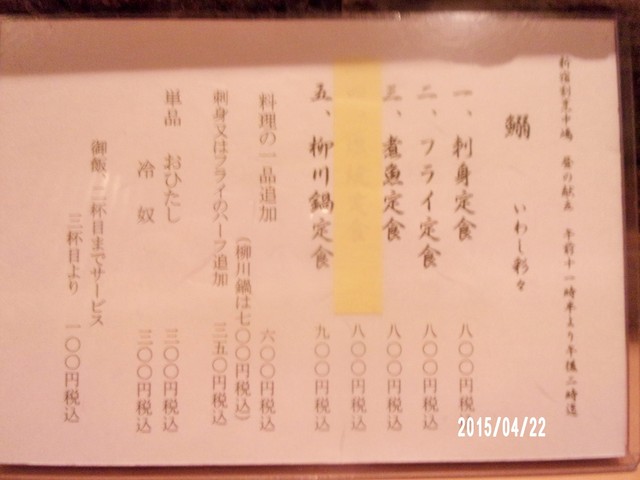 新宿割烹中嶋　昼の献立　午前十一時半より午後二時迄
鰯　いわし彩々
一、刺身定食　八〇〇円税込
二、フライ定食　八〇〇円税込
三、煮魚定食　八〇〇円税込
八〇〇円税込
五、柳川鍋定食　九〇〇円税込
料理の一品追加　六〇〇円税込
（柳川鍋は七〇〇円税込）
刺身又はフライのハーフ追加　三五〇円税込
単品　おひたし　三〇〇円税込
冷奴　三〇〇円税込
御飯、二杯目までサービス
三杯目より　一〇〇円税込
2015/04/22